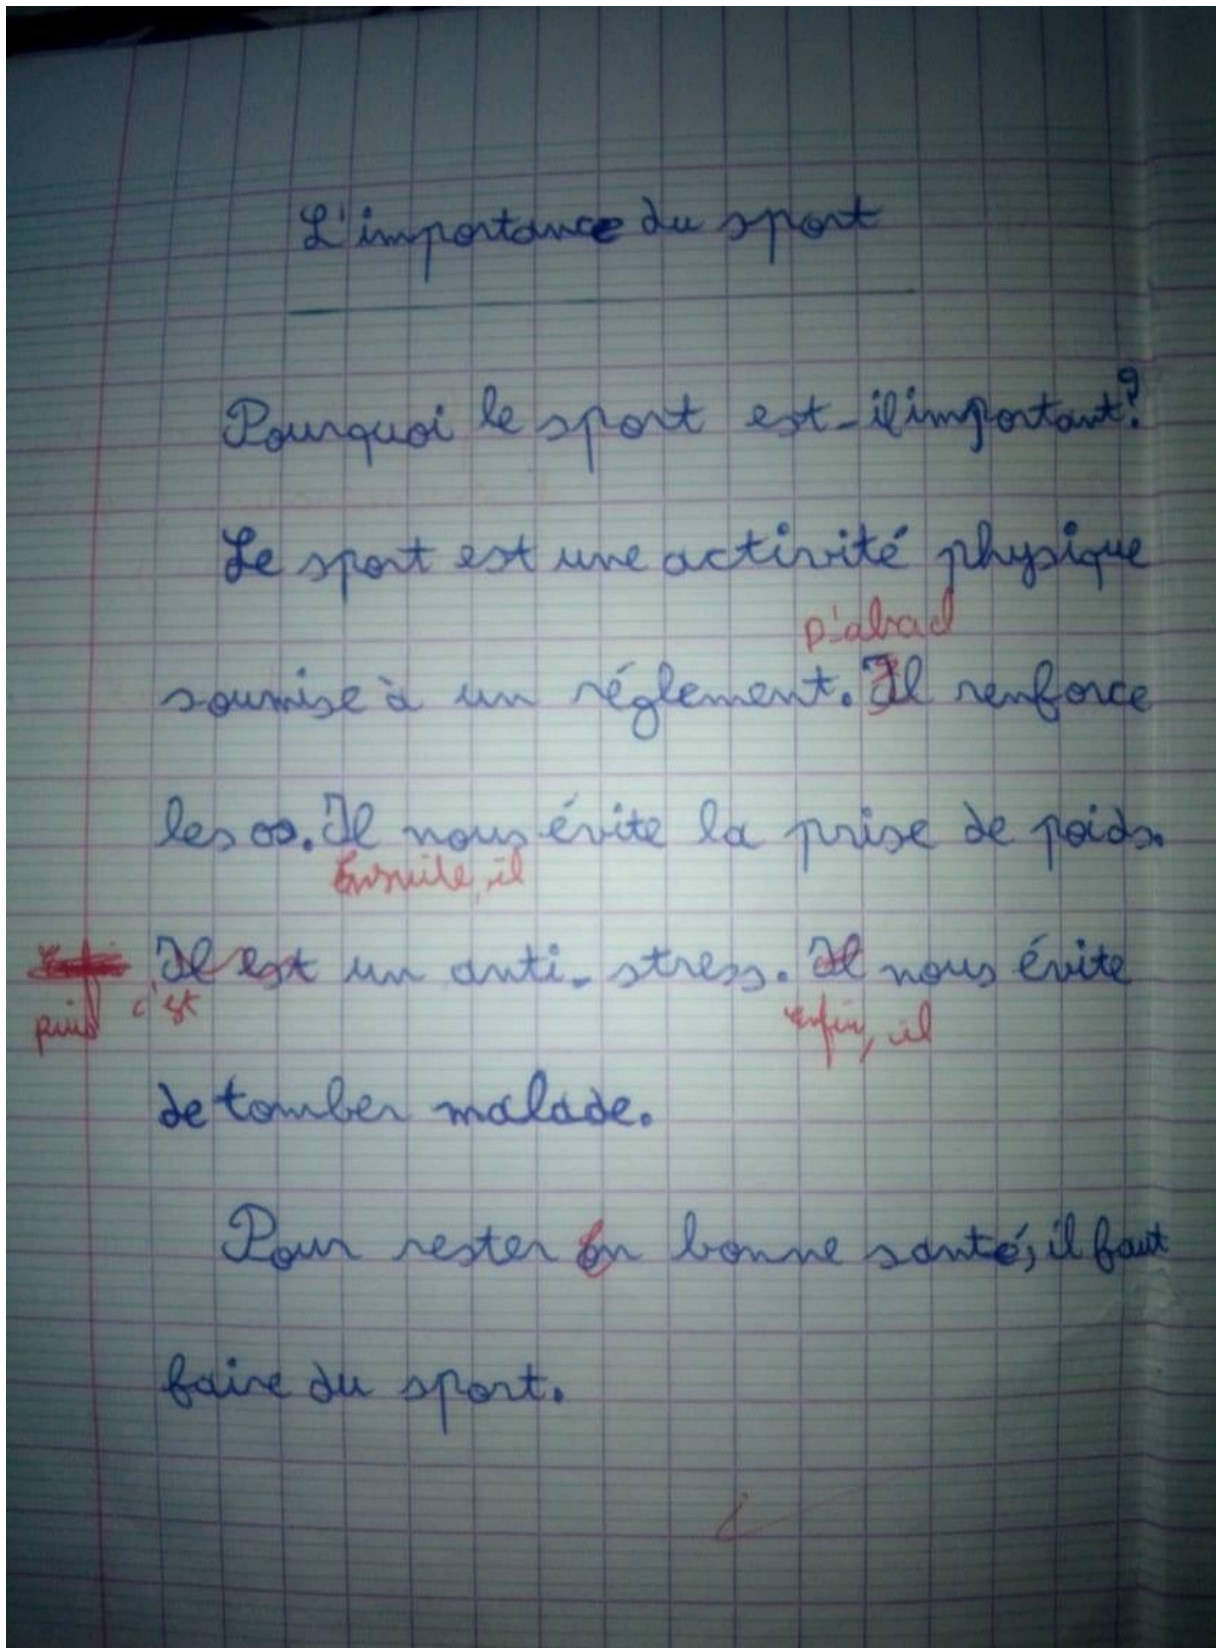 L'importance du sport
Pourquoi le sport est-il important?
Le sport est une activité physique
D'abord
soumise à un réglement. Il renforce
les os. Il nous évite la prise de poids.
Ensuite, il
Il est un anti-stress. Il nous évite
puis c'est Enfin, il
de tomber malade.
Pour rester en bonne santé, il faut
faire du sport.